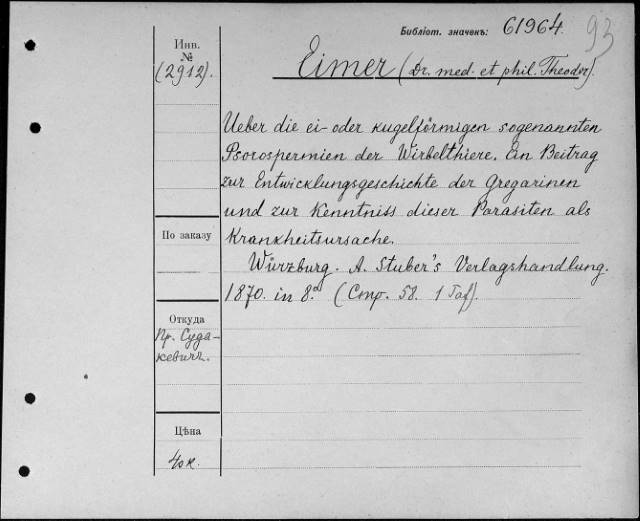 Библіот. значекъ: 61964.
93
Инв.
№
(2912).
Eimer (Dr. med. et phil. Theodor).
Ueber die ei- oder kugelförmigen sogenannten
Psorospermien der Wirbelthiere. Ein Beitrag
zur Entwicklungsgeschichte der Gregarinen
und zur Kenntniss dieser Parasiten als
Krankheitsursache.
Würzburg. A. Stuber's Verlagshandlung.
1870. in 8.º (Стр. 58. 1 Taf).
По заказу
Откуда
Пр. Суда-
кевичъ.
Цѣна
40к.